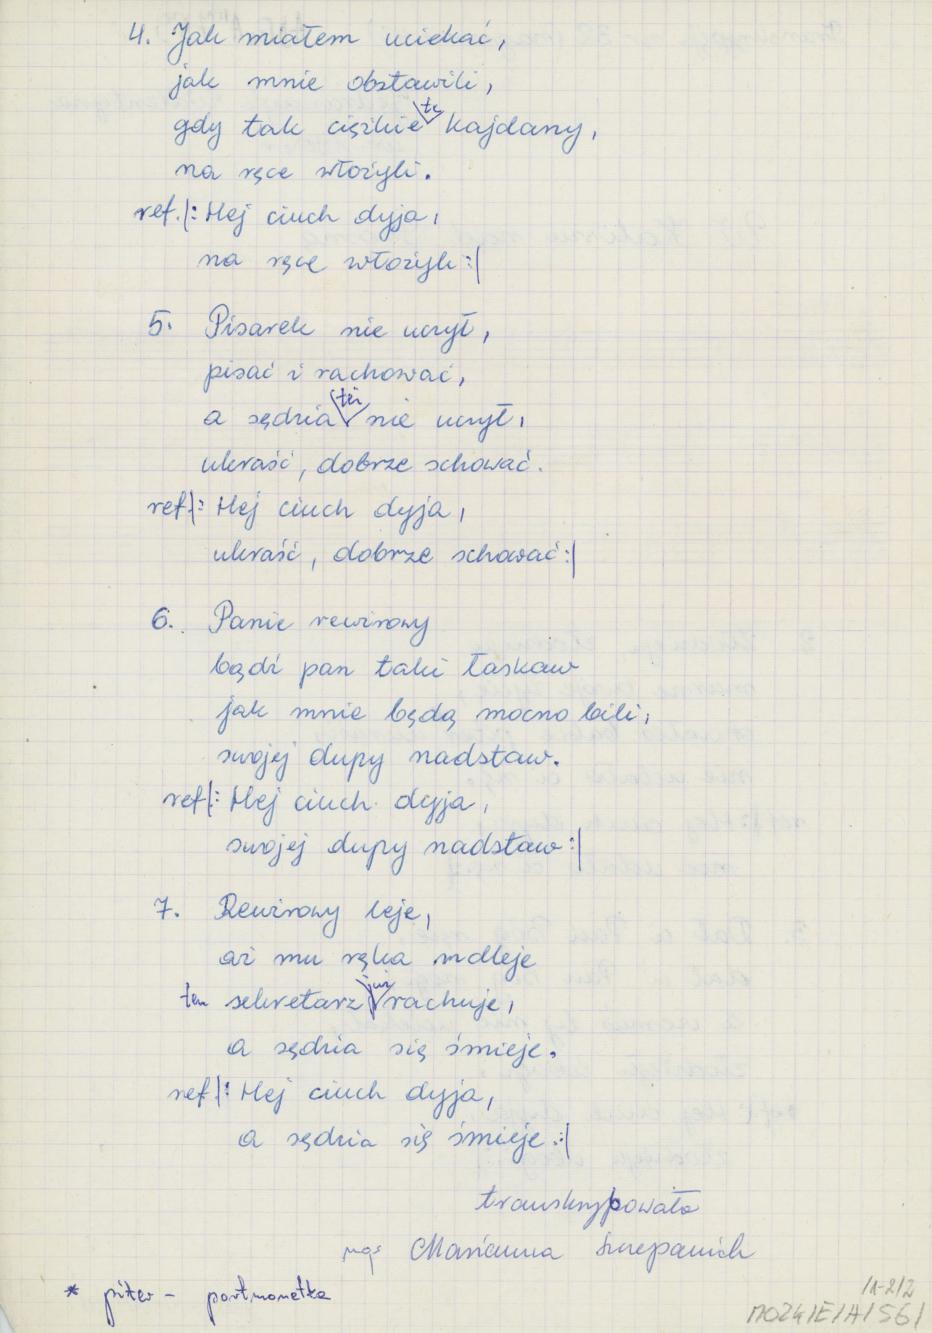 4. Jak miałem uciekać,
jak mnie obstawili,
gdy tak ciężkie te kajdany,
na ręce włożyli.
ref. |: Hej ciuch dyja,
na ręce włożyli :|
5. Pisarek nie uczył,
pisać i rachować,
a sędzia też nie uczył,
ukraść, dobrze schować.
ref |: Hej ciuch dyja,
ukraść, dobrze schować :|
6. Panie rewirowy
bądź pan taki łaskaw
jak mnie będą mocno bili,
swojej dupy nadstaw.
ref |: Hej ciuch dyja,
swojej dupy nadstaw :|
7. Rewirowy leje,
aż mu ręka mdleje
ten sekretarz już rachuje,
a sędzia się śmieje.
ref |: Hej ciuch dyja,
a sędzia się śmieje :|
transkrypowała
mgr Marianna Szczepanich
* piter - portmonetka
/1-2/2
MOZG/E/A/56/